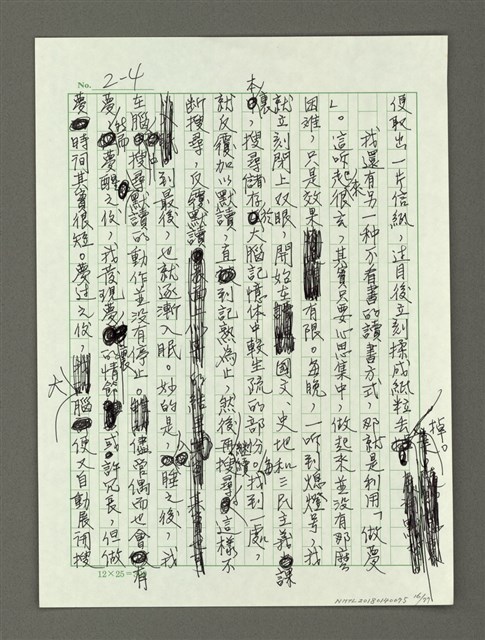 No. 2-4
便取出一片信紙，過目後立刻揉成紙粒丟掉。
我還有另一種不看書的讀書方式，那就是利用「做夢
」。這听起來很玄，其實只要心思集中，做起來並沒有那麼
困难，只是效果有限。每晚，一听到熄燈号，我
就立刻閉上双眼，開始在裏國文、史地和三民主義課
本，搜尋儲存於大腦記憶体中較生疏的部份。找到一處，
就反覆加以默讀，直到記熟為止，然後再繼續搜尋。這樣不
断搜尋，反覆默讀
到最後，也就逐漸入眠。妙的是，入睡之後，我
在腦中搜尋默讀的動作並沒有停止。儘管偶而也會有
夢，然而夢醒之後，我發現夢裏的情節或許冗長，但做
夢時间其實很短。夢过之後，大腦便又自動展開搜
12×25=
NMTL20180140095 16/77